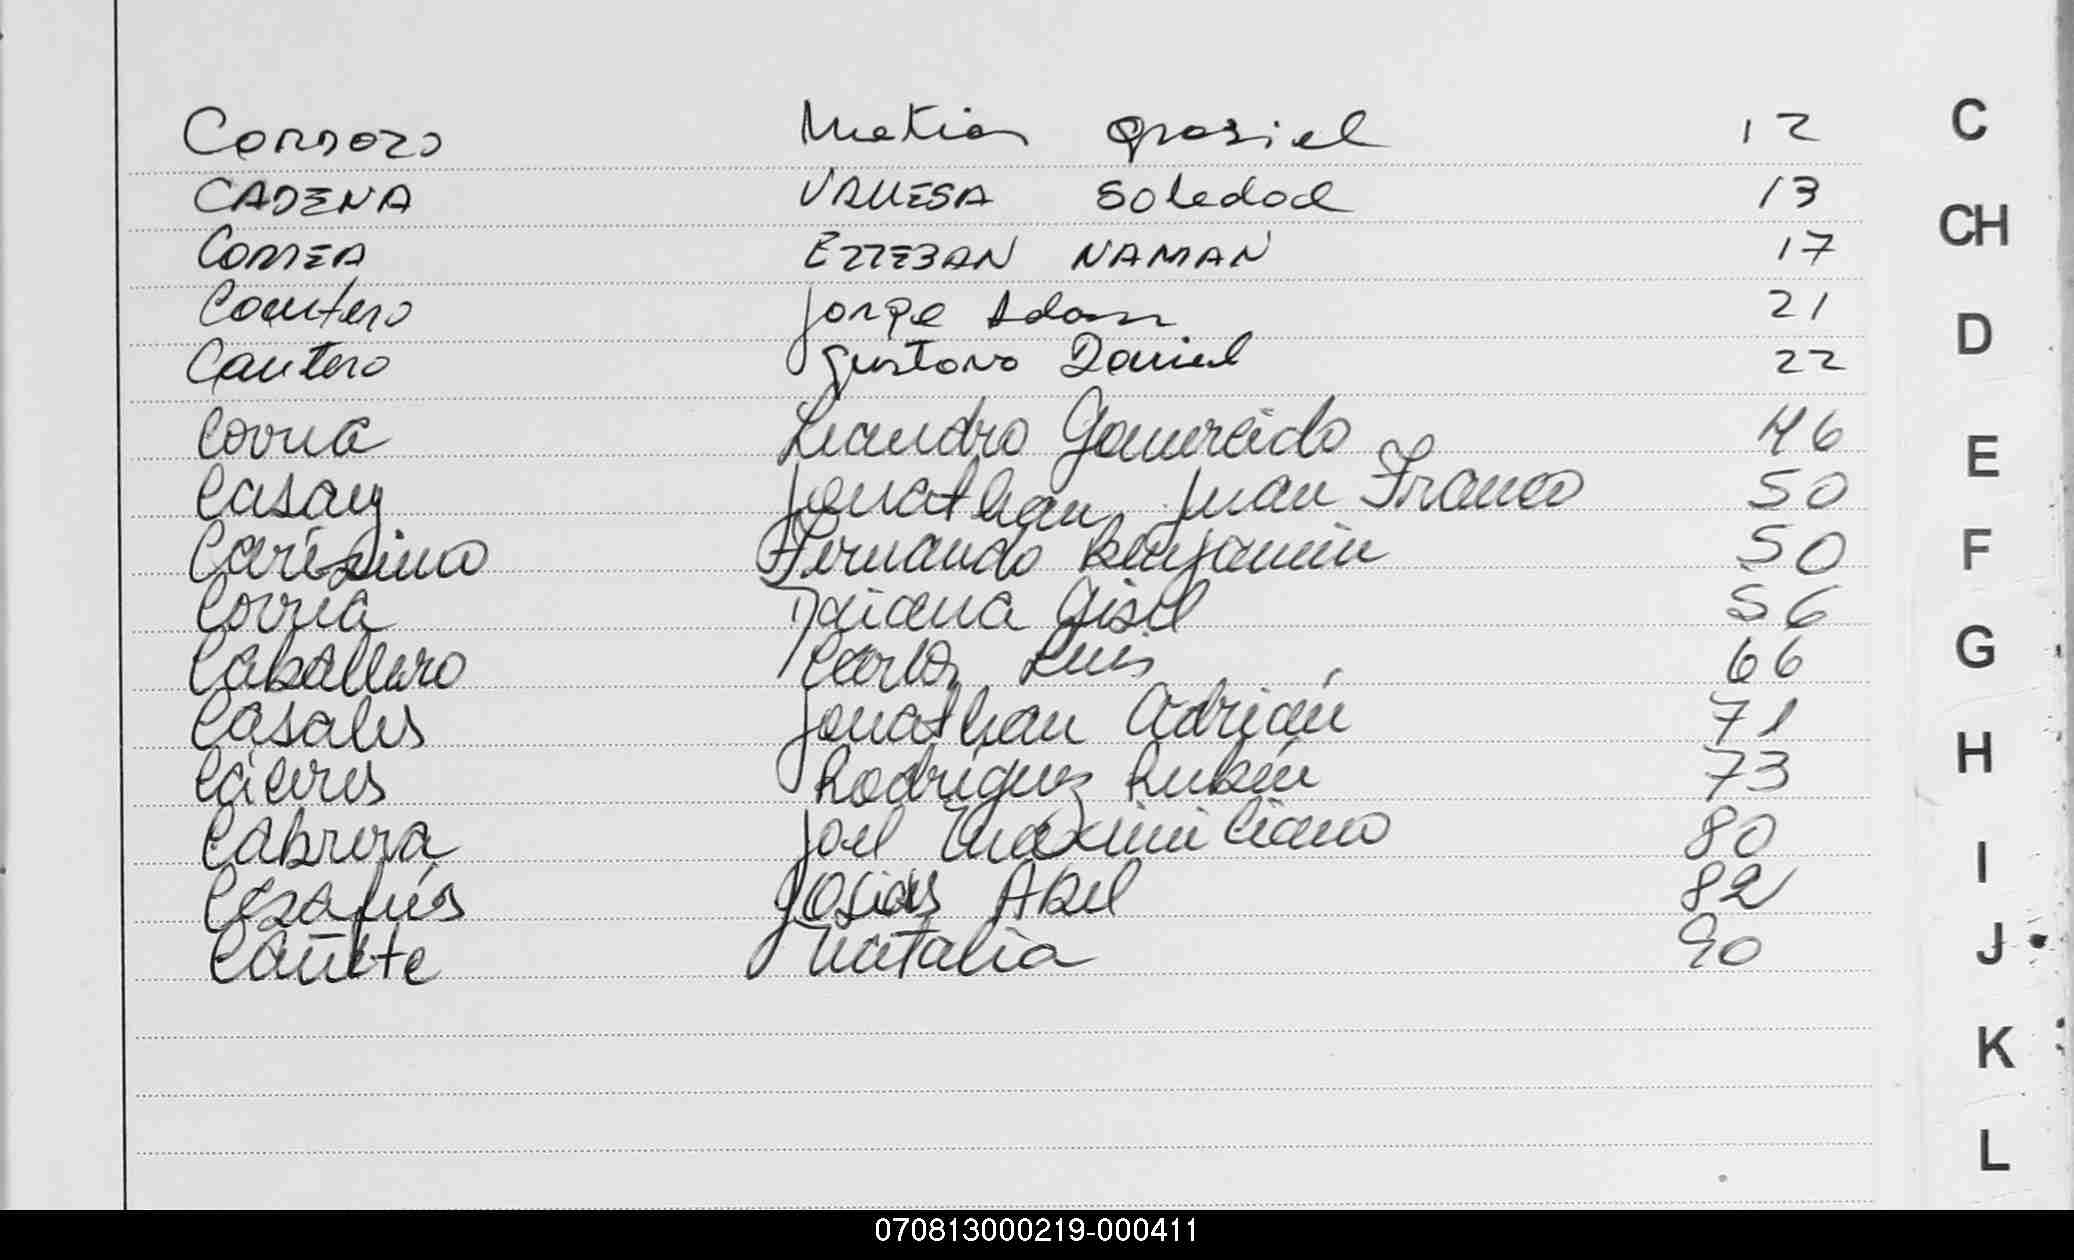 Cardozo Matias Graziel 12 C
CADENA VANESA Soledad 13
CORREA ESTEBAN NAMAN 17 CH
Cantero Jorge Adam 21
Cantero Gustavo Daniel 22 D
Correa Leandro 46
Casay Jonathan Juan Franco 50 E
Fernando Benjamin 50 F
Correa Daiana Gisel 56
Caballero Carlos Luis 66 G
Casales Jonathan Adrián 71
Cáceres Rodríguez Rubén 73 H
Cabrera Joel Maximiliano 80
Josias Abel 82 I
Cañete Natalia 90 J
K
L
070813000219-000411